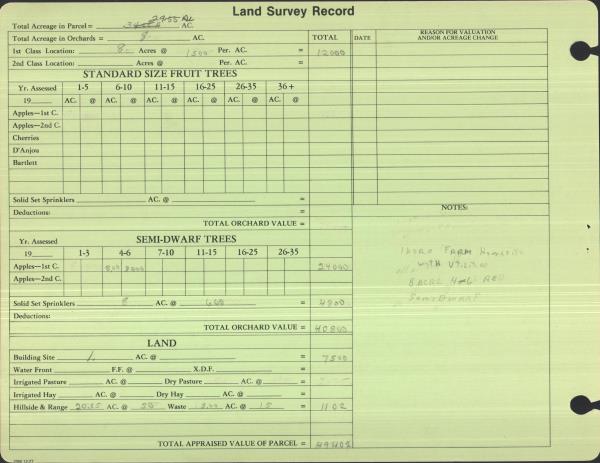 Land Survey Record
Total Acreage in Parcel = AC. 29.55 AC
Total Acreage in Orchards = 8 AC. TOTAL DATE REASON FOR VALUATION AND/OR ACREAGE CHANGE
1st Class Location: 8 Acres @ 1500 Per. AC. = 12000
2nd Class Location: Acres @ Per. AC. =
STANDARD SIZE FRUIT TREES
Yr. Assessed 1-5 6-10 11-15 16-25 26-35 36+
19 AC. @ AC. @ AC. @ AC. @ AC. @ AC. @
Apples—1st C.
Apples—2nd C.
Cherries
D'Anjou
Bartlett
Solid Set Sprinklers AC. @ =
Deductions: =
NOTES:
TOTAL ORCHARD VALUE =
SEMI-DWARF TREES
Yr. Assessed
19 1-3 4-6 7-10 11-15 16-25 26-35
Apples—1st C. 8.00 3000 24000
Apples—2nd C.
FARM
with
8 ACRE 4-6 RED
SEMI DWARF
Solid Set Sprinklers 8 AC. @ 600 = 4800
Deductions:
TOTAL ORCHARD VALUE = 40800
LAND
Building Site 1. AC. @ = 7500
Water Front F.F. @ X.D.F. =
Irrigated Pasture AC. @ Dry Pasture AC. @ =
Irrigated Hay AC. @ Dry Hay AC. @ =
Hillside & Range 20.55 AC. @ Waste AC. @ 15 = 1102
TOTAL APPRAISED VALUE OF PARCEL = 49402